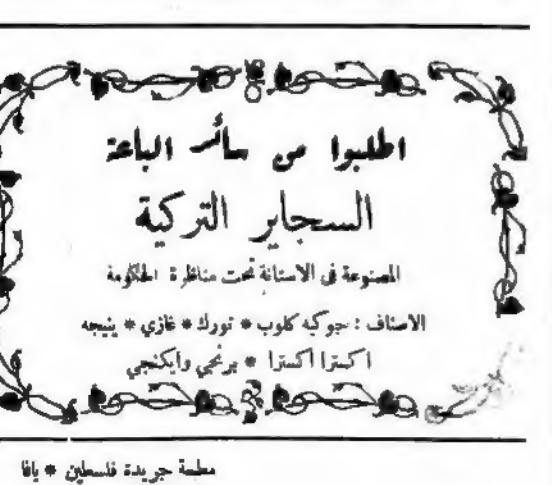 اطلبوا من سائر الباعة
السجاير التركية
المصنوعة في الاستانة تحت مناظرة الحكومة
الاصناف : جوكيه كلوب * تورك * غازي * ينيجه
اكسترا اكسترا * برنجي وايكنجي
مطبعة جريدة فلسطين * يافا